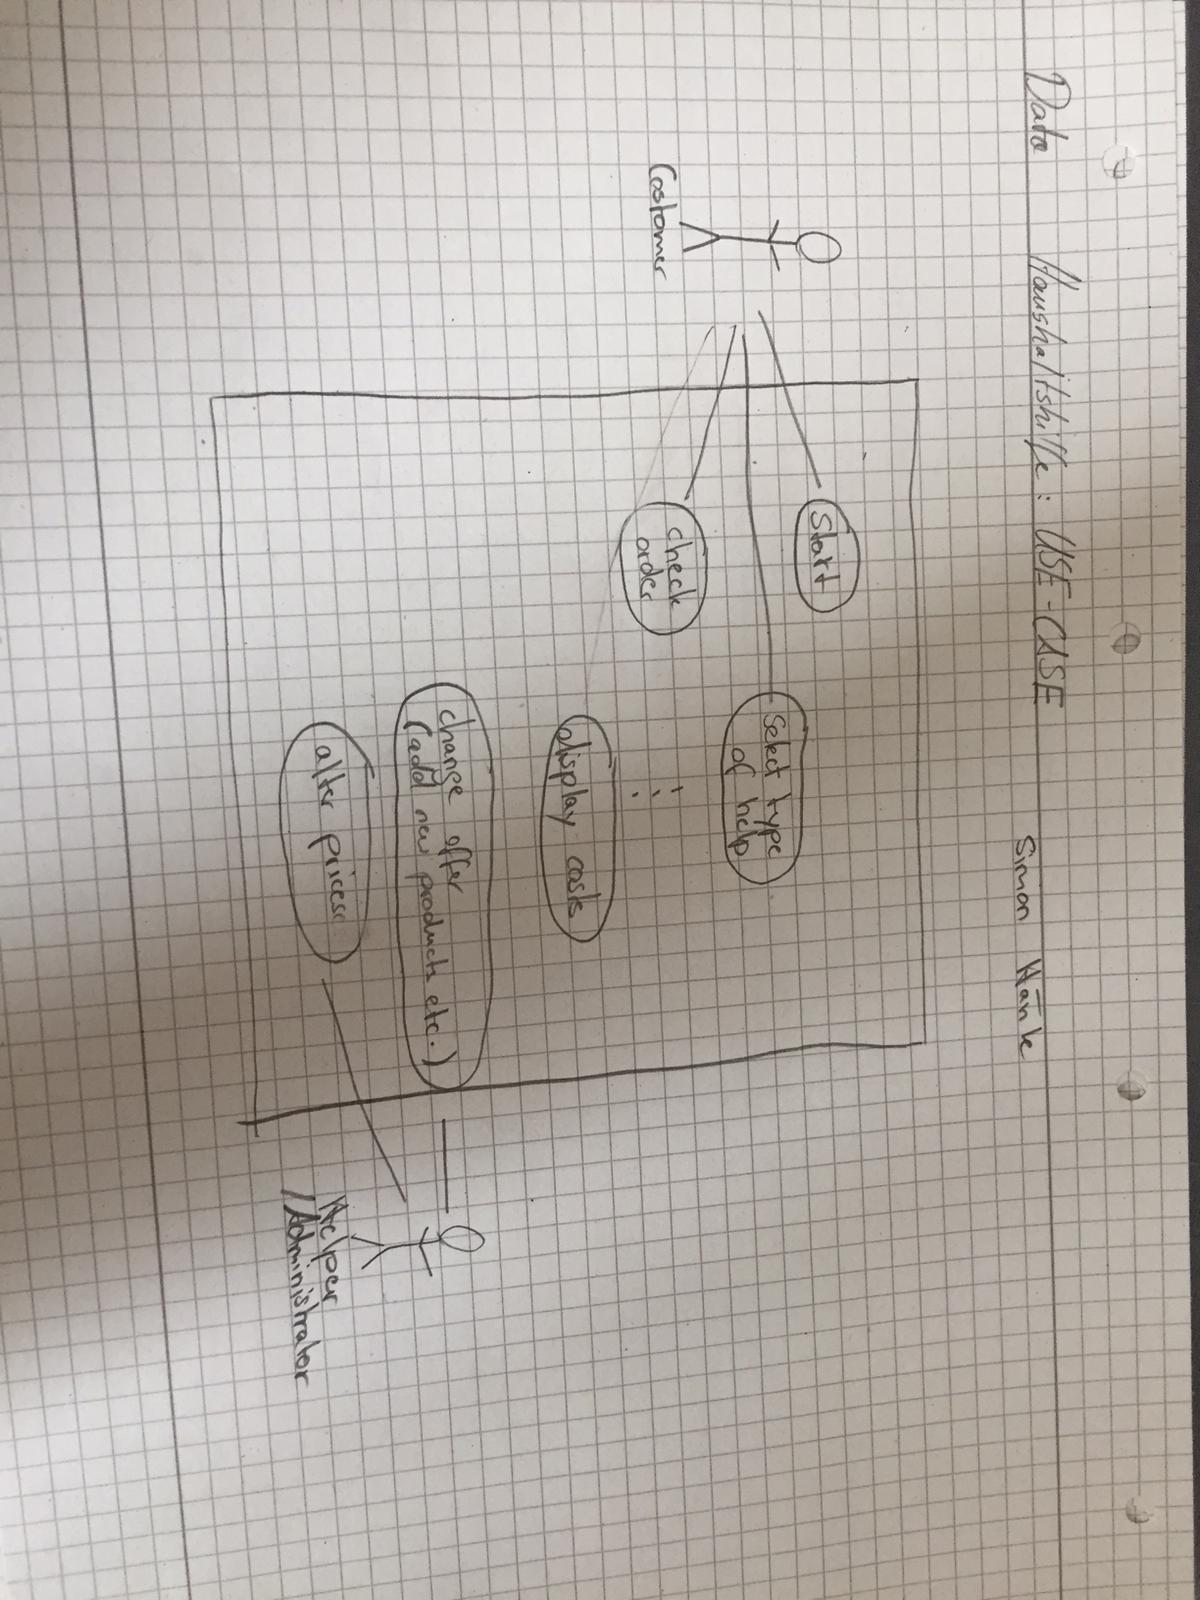 Data Haushaltshilfe: USE-CASE Simon Hänle
Costomer
Start
Select type
of help
check
order
display costs
change offer
(add new products etc.)
alter prices
Helper
/Administrator